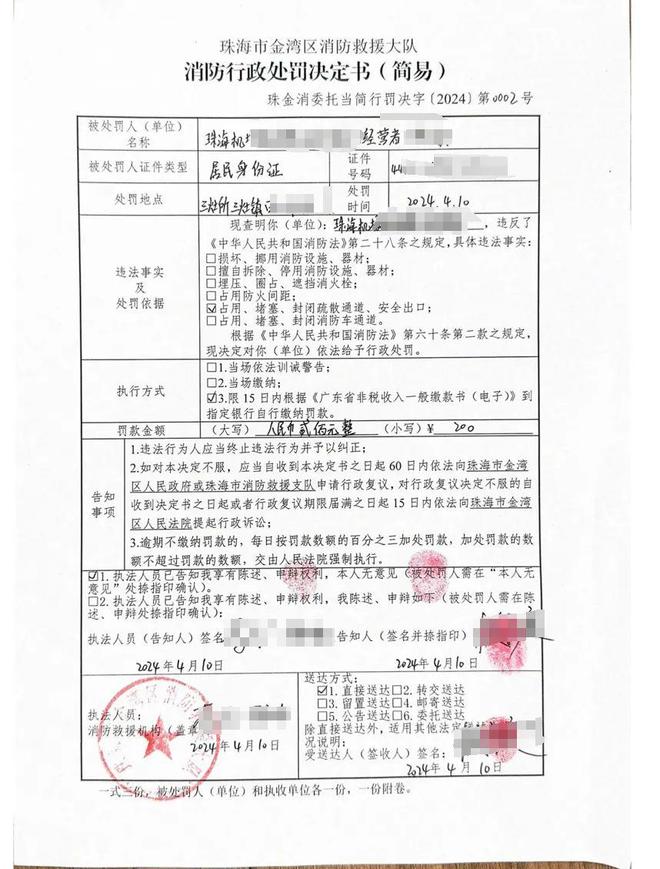 珠海市金湾区消防救援大队
消防行政处罚决定书（简易）
珠金消委托当简行罚决字〔2024〕第0002号
被处罚人（单位）名称
珠海机 经营者
被处罚人证件类型
居民身份证
证件号码
44
处罚地点
三灶所三灶镇
处罚时间
2024.4.10
违法事实及处罚依据
现查明你（单位）：珠海机 ，违反了
《中华人民共和国消防法》第二十八条之规定，具体违法事实：
□损坏、挪用消防设施、器材；
□擅自拆除、停用消防设施、器材；
□埋压、圈占、遮挡消火栓；
□占用防火间距；
☑占用、堵塞、封闭疏散通道、安全出口；
□占用、堵塞、封闭消防车通道。
根据《中华人民共和国消防法》第六十条第二款之规定，
现决定对你（单位）依法给予行政处罚。
执行方式
□1.当场依法训诫警告；
□2.当场缴纳；
☑3.限15日内根据《广东省非税收入一般缴款书（电子）》到
指定银行自行缴纳罚款。
罚款金额
（大写） 人民币贰佰元整 （小写）¥ 200
告知事项
1.违法行为人应当终止违法行为并予以纠正；
2.如对本决定不服，应当自收到本决定书之日起60日内依法向珠海市金湾
区人民政府或珠海市消防救援支队申请行政复议，对行政复议决定不服的自
收到决定书之日起或者行政复议期限届满之日起15日内依法向珠海市金湾
区人民法院提起行政诉讼；
3.逾期不缴纳罚款的，每日按罚款数额的百分之三加处罚款，加处罚款的数
额不超过罚款的数额，交由人民法院强制执行。
☑1.执法人员已告知我享有陈述、申辩权利，本人无意见（被处罚人需在“本人无
意见”处捺指印确认）。
□2.执法人员已告知我享有陈述、申辩权利，我陈述、申辩如下（被处罚人需在陈
述、申辩处捺指印确认）：
执法人员（告知人）签名 被告知人（签名并捺指印）
2024年4月10日 2024年4月10日
执法人员：
消防救援机构（盖章
2024年4月10日
送达方式：
☑1.直接送达□2.转交送达
□3.留置送达□4.邮寄送达
□5.公告送达□6.委托送达
除直接送达外，适用其他法定
况说明：
受送达人（签收人）签名：
2024年4月10日
一式二份，被处罚人（单位）和执收单位各一份，一份附卷。